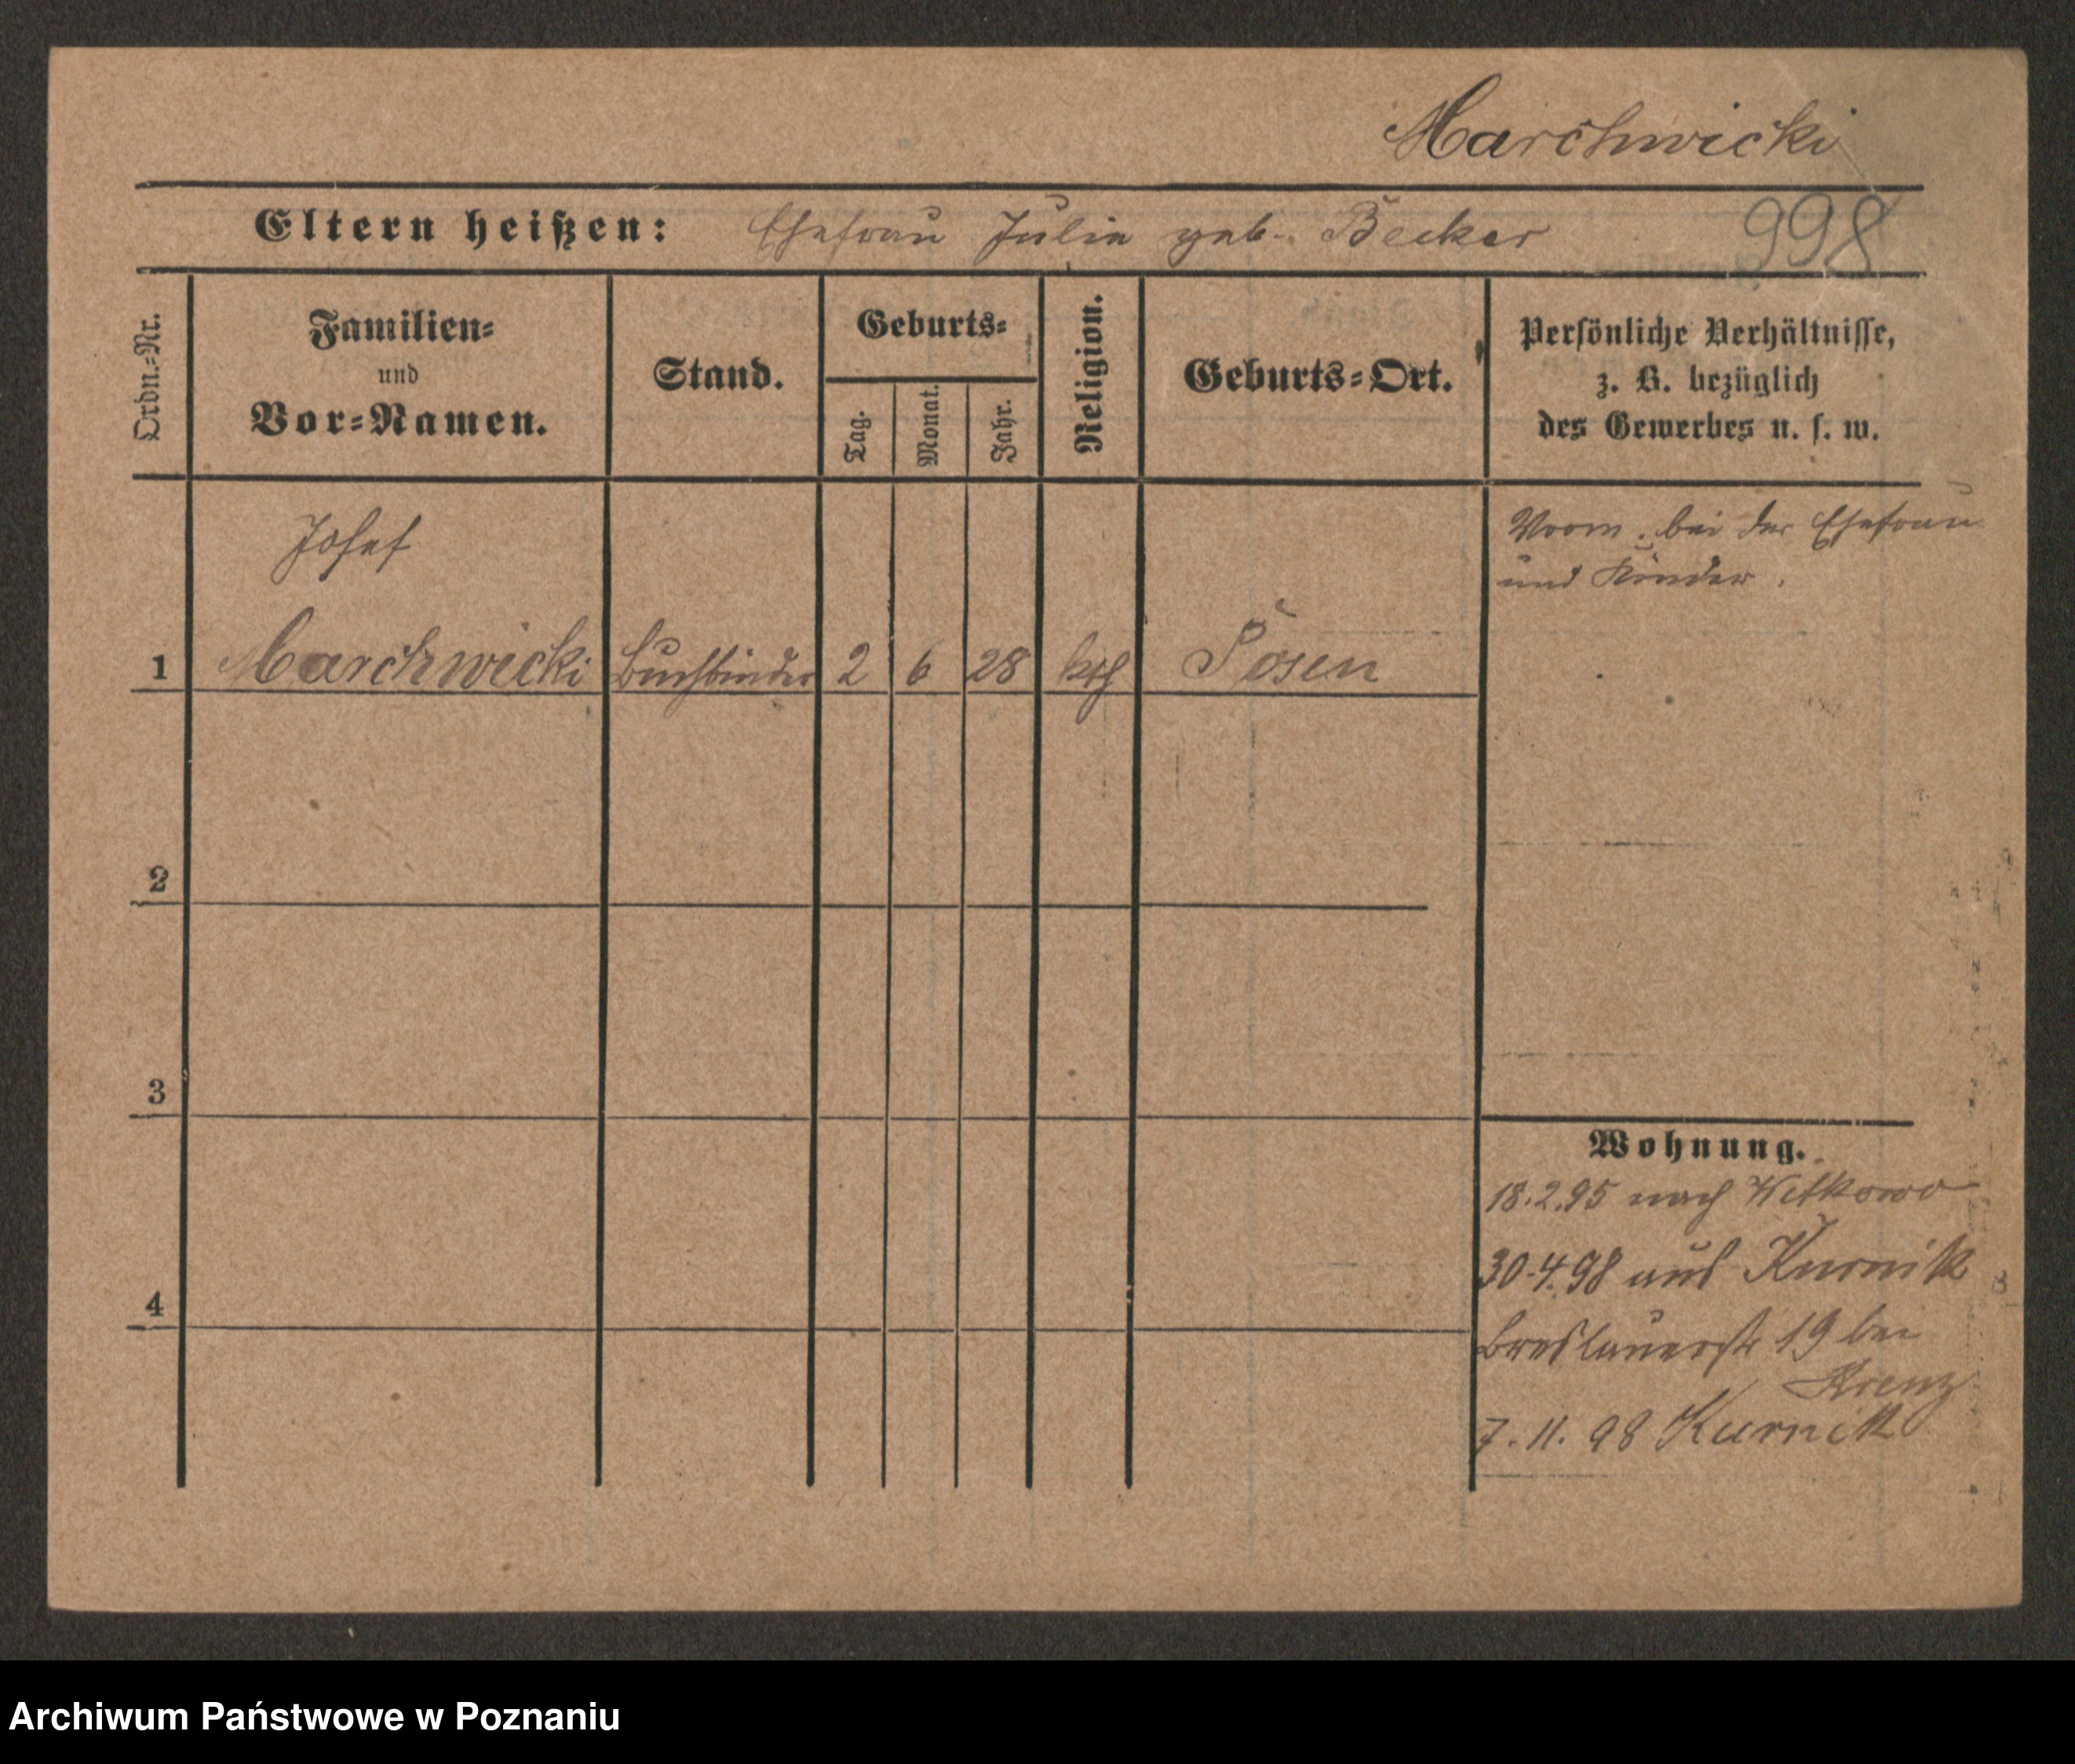 Marchwicki
Eltern heißen: Ehefrau Julie geb. Becker 998
Ordn.=Nr.
Familien=
und
Vor=Namen.
Stand.
Geburts=
Tag.
Monat.
Jahr.
Religion.
Geburts=Ort.
Persönliche Verhältnisse,
z. B. bezüglich
des Gewerbes u. s. w.
Josef
1 Marchwicki Buchbinder 2 6 28 kth Posen
bei der Ehefrau
und Kinder.
2
3
4
Wohnung.
18.2.95 nach Witkowo
30.4.98 aus Kurnik
Breslauerstr 19 bei
Krenz
7.11.98 Kurnik
Archiwum Państwowe w Poznaniu